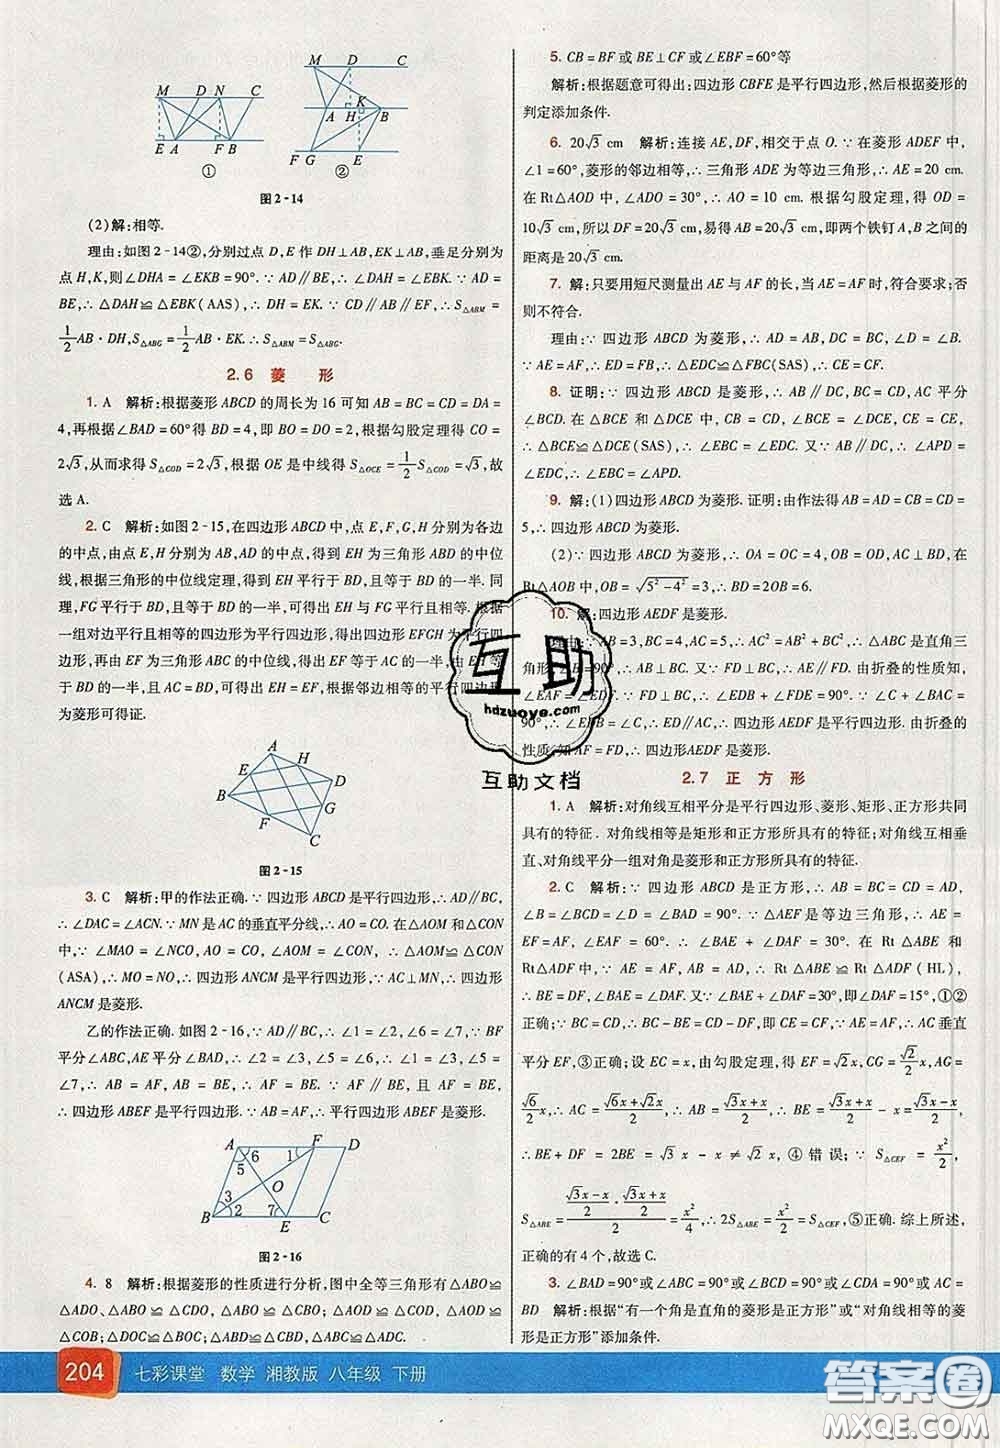 M D N C
E A F B
①
M D C
A H K B
F G E
②
图2-14
(2)解:相等.
理由:如图2-14②,分别过点D,E作DH⊥AB,EK⊥AB,垂足分别为
点H,K,则∠DHA=∠EKB=90°.∵AD∥BE,∴∠DAH=∠EBK.∵AD=
BE,∴△DAH≌△EBK(AAS),∴DH=EK.∵CD∥AB∥EF,∴S△ABM=
1/2 AB·DH,S△ABG=1/2 AB·EK.∴S△ABM=S△ABG.
2.6 菱 形
1. A 解析:根据菱形ABCD的周长为16可知AB=BC=CD=DA=
4,再根据∠BAD=60°得BD=4,即BO=DO=2,根据勾股定理得CO=
2√3,从而求得S△COD=2√3,根据OE是中线得S△OCE=1/2 S△COD=√3,故
选A.
2. C 解析:如图2-15,在四边形ABCD中,点E,F,G,H分别为各边
的中点,由点E,H为AB,AD的中点,得到EH为三角形ABD的中位
线,根据三角形的中位线定理,得到EH平行于BD,且等于BD的一半.同
理,FG平行于BD,且等于BD的一半,可得到EH与FG平行且相等.根据
一组对边平行且相等的四边形为平行四边形,得出四边形EFGH为平行四
边形,再由EF为三角形ABC的中位线,得出EF等于AC的一半,由EH等
于BD的一半,且AC=BD,可得出EH=EF,根据邻边相等的平行四边形
为菱形可得证.
A H D E B G F C
图2-15
3. C 解析:甲的作法正确.∵四边形ABCD是平行四边形,∴AD∥BC,
∴∠DAC=∠ACN.∵MN是AC的垂直平分线,∴AO=CO.在△AOM和△CON
中,∵∠MAO=∠NCO,AO=CO,∠AOM=∠CON,∴△AOM≌△CON
(ASA),∴MO=NO,∴四边形ANCM是平行四边形.∵AC⊥MN,∴四边形
ANCM是菱形.
乙的作法正确.如图2-16,∵AD∥BC,∴∠1=∠2,∠6=∠7,∵BF
平分∠ABC,AE平分∠BAD,∴∠2=∠3,∠5=∠6,∴∠1=∠3,∠5=
∠7,∴AB=AF,AB=BE,∴AF=BE.∵AF∥BE,且AF=BE,
∴四边形ABEF是平行四边形.∵AB=AF,∴平行四边形ABEF是菱形.
A 6 1 F D
5 O
3 2 7
B E C
图2-16
4. 8 解析:根据菱形的性质进行分析,图中全等三角形有△ABO≌
△ADO、△ABO≌△CDO、△ABO≌△CBO;△AOD≌△COD、△AOD≌
△COB;△DOC≌△BOC;△ABD≌△CBD、△ABC≌△ADC.
5. CB=BF或BE⊥CF或∠EBF=60°等
解析:根据题意可得出:四边形CBFE是平行四边形,然后根据菱形的
判定添加条件.
6. 20√3 cm 解析:连接AE,DF,相交于点O.∵在菱形ADEF中,
∠1=60°,菱形的邻边相等,∴三角形ADE为等边三角形,∴AE=20 cm.
在Rt△AOD中,∵∠ADO=30°,∴AO=10 cm.根据勾股定理得OD=
10√3 cm,所以DF=20√3 cm,易得AB=20√3 cm,即两个铁钉A,B之间的
距离是20√3 cm.
7. 解:只要用短尺测量出AE与AF的长,当AE=AF时,符合要求;否
则不符合.
理由:∵四边形ABCD为菱形,∴AD=AB,DC=BC,∠D=∠B.
∵AE=AF,∴ED=FB,∴△EDC≌△FBC(SAS),∴EC=FC.
8. 证明:∵四边形ABCD是菱形,∴CD=CB,AB∥CD,AC平分
∠BCD.在△BCE和△DCE中,CB=CD,∠BCE=∠DCE,CE=CE,
∴△BCE≌△DCE(SAS),∴∠EBC=∠EDC.又∵AB∥DC,∴∠APD=
∠EDC,∴∠EBC=∠APD.
9. 解:(1)四边形ABCD为菱形.证明:由作法得AB=AD=CB=CD=
5,∴四边形ABCD为菱形.
(2)∵四边形ABCD为菱形,∴OA=OC=4,OB=OD,AC⊥BD,在
Rt△AOB中,OB=√(5²-4²)=3,∴BD=2OB=6.
10. 解:四边形AEDF是菱形.
理由:∵AB=3,BC=4,AC=5,∴AC²=AB²+BC²,∴△ABC是直角三
角形,∠B=90°,∴AB⊥BC.又∵FD⊥BC,∴AE∥FD.由折叠的性质知,
∠EAF=∠EDF.∵FD⊥BC,∴∠EDB+∠EDF=90°.∵∠C+∠EAF=
90°,∴∠EDB=∠C,∴ED∥AC,∴四边形AEDF是平行四边形.由折叠的
性质,知AF=FD,∴四边形AEDF是菱形.
2.7 正 方 形
1. A 解析:对角线互相平分是平行四边形、菱形、矩形、正方形共同
具有的特征.对角线相等是矩形和正方形所具有的特征;对角线互相垂
直、对角线平分一组对角是菱形和正方形所具有的特征.
2. C 解析:∵四边形ABCD是正方形,∴AB=BC=CD=AD,
∠B=∠BCD=∠D=∠BAD=90°.∵△AEF是等边三角形,∴AE=
EF=AF,∠EAF=60°.∴∠BAE+∠DAF=30°.在Rt△ABE和
Rt△ADF中,∵AE=AF,AB=AD,∴Rt△ABE≌Rt△ADF(HL),
∴BE=DF,∠BAE=∠DAF.∵∠BAE+∠DAF=30°,即∠DAF=15°,①②
正确;∵BC=CD,∴BC-BE=CD-DF,即CE=CF,∵AE=AF,∴AC垂直
平分EF,③正确;设EC=x,由勾股定理,得EF=√2x,CG=√2/2 x,AG=
√6/2 x,∴AC=(√6x+√2x)/2,∴AB=(√3x+x)/2,∴BE=(√3x+x)/2-x=(√3x-x)/2,
∴BE+DF=2BE=√3x-x≠√2x,④错误;∵S△CEF=x²/2,
S△ABE=((√3x-x)/2·(√3x+x)/2)/2=x²/4,∴2S△ABE=x²/2=S△CEF,⑤正确.综上所述,
正确的有4个,故选C.
3. ∠BAD=90°或∠ABC=90°或∠BCD=90°或∠CDA=90°或AC=
BD 解析:根据“有一个角是直角的菱形是正方形”或“对角线相等的菱
形是正方形”添加条件.
互助
hdzuoye.com
互助文档
204 七彩课堂 数学 湘教版 八年级 下册
答案圈
MXQE.COM